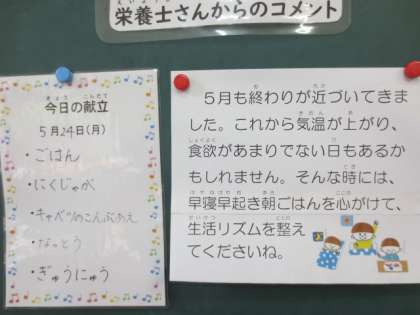 栄養士さんからのコメント
今日の献立
5月24日(月)
・ごはん
・にくじゃが
・キャベツのこんぶあえ
・なっとう
・ぎゅうにゅう
5月も終わりが近づいてきま
した。これから気温が上がり、
食欲があまりでない日もあるか
もしれません。そんな時には、
早寝早起き朝ごはんを心がけて、
生活リズムを整え
てくださいね。